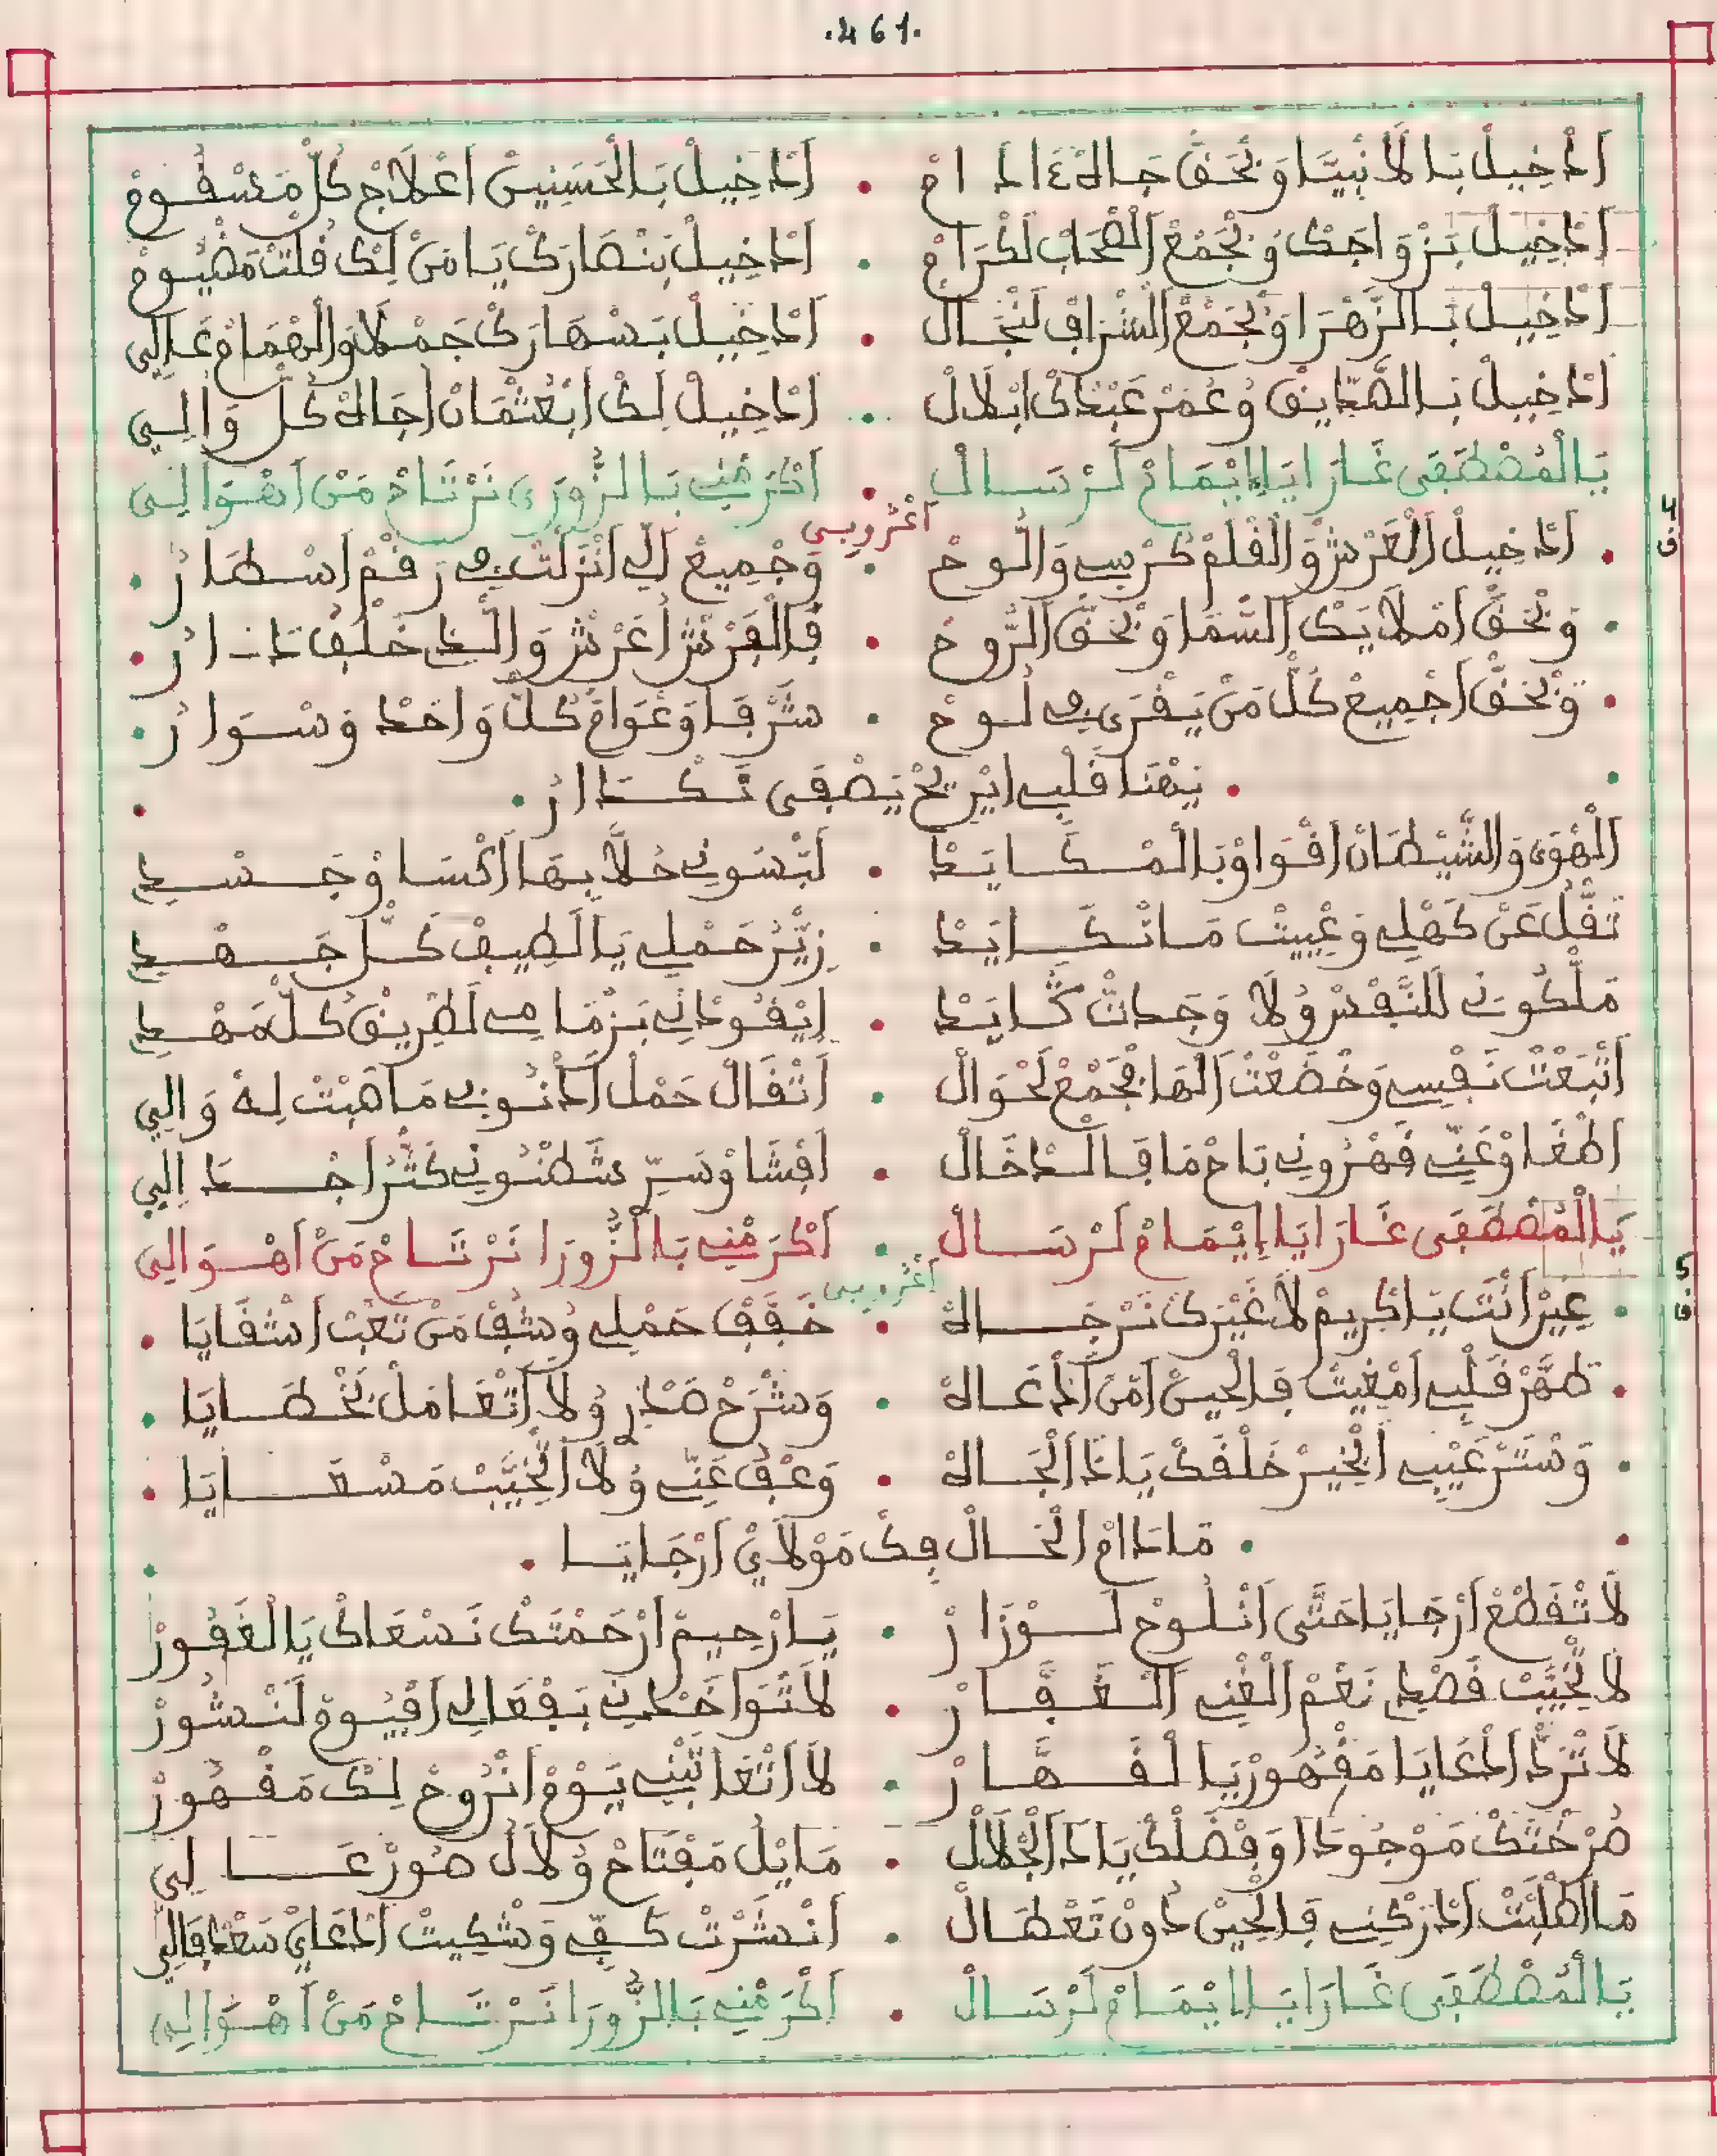 .461.
اَدْخِيلْ بَالَانْبِيَّا وَبْحَقّْ جَاهْ ءَادَامْ . اَدْخِيلْ بَالْحَسَنِينْ اَعْلَاجْ كُلّْ مَسْقُومْ
اَدْخِيلْ بَزْوَاجَكْ وَبْجَمْعْ اَلصّْحَابْ لَكْرَامْ . اَدْخِيلْ بَنْصَارَكْ يَا مَنْ لِكْ قُلْتْ مَضْيُومْ
اَدْخِيلْ بَالزَّهْرَا وَبْجَمْعْ اَلشّْرَافْ لَنْجَالْ . اَدْخِيلْ بَسْهَارَكْ جَمْلَا وَالْهْمَامْ عَالِي
اَدْخِيلْ بَالصّْدِّيقْ وُعُمَرْ عَبْدَكْ ابْلَالْ . اَدْخِيلْ لِكْ اَبْعُثْمَانْ اُجَاهْ كُلّْ وَالِي
يَالْمُصْطَفَى غَارَا يَا اِيْمَامْ لَرْسَالْ . اَكْرَمْنِي بَالزُّورَى نَرْتَاحْ مَنْ اَهْوَالِي
4 ف
اَعْرُوبِي
. اَدْخِيلْ اَبْعَرْشْ وَالْقْلَمْ كُرْسِي وَالُّوحْ . وَجْمِيعْ اَلِّي اَنْزَلْتْ فِي رَقْمْ اَسْطَارُ .
. وَبْحَقّْ اَمْلَايَكْ اَلسّْمَا وَبْحَقّْ اَلرُّوحْ . فَالْفَرْشْ اُعَرْشْ وَالْذِي خَلْفْ دَارُ .
. وَبْحَقّْ اَجْمِيعْ كُلّْ مَنْ يَقْرَى فِي لُوحْ . شَرْفَا وَعْوَامْ كُلّْ وَاحَدْ وَسْوَارُ .
. يَهْنَا قَلْبِي ايْرِيحْ يَصْفَى تَكْدَارُ .
اَلْهْوَى وَالشِّيطَانْ اَقْوَاوْ بَالْمْكَايَدْ . لَبّْسُونِي حُلَّا بِهَا اَكْسَاوْ جَسْدِي
تَقَّلْ عَنْ كَهْلِي وَعْيِيتْ مَا نْكَايَدْ . زِيَّرْ حَمْلِي يَا لَطِيفْ كَلّْ جَهْدِي
مَلّْكُونِي لَلنَّفْسْ وُلَا وَجَدْتْ كَايَدْ . اِيْقُودْنِي بَزْمَامِي لَطْرِيقْ كُلّْ مَهْدِي
اَتْبَعْتْ نَفْسِي وَخْضَعْتْ اَلْهَا فْجَمْعْ لَحْوَالْ . اَتْقَالْ حَمْلْ اَدْنُوبِي مَا هَبْتْ لِهْ وَالِي
اَطْغَاوْ عَنِّي قَهْرُونِي بَاحْ مَا فَالدّْخَالْ . اَفْشَاوْ سَرِّي شَطْنُونِي كَثْرُ اَجْدَالِي
يَالْمُصْطَفَى غَارَا يَا اِيْمَامْ لَرْسَالْ . اَكْرَمْنِي بَالزُّورَا نَرْتَاحْ مَنْ اَهْوَالِي
5 ف
اَعْرُوبِي
. غِيرْ اَنْتَ يَا كْرِيمْ لَا غَيْرَكْ نَرْجَاهْ . خَفَّفْ حَمْلِي وُشُفْ مَنْ تَعْبْ اَشْقَايَا .
. طَهَّرْ قَلْبِي اَمْغِيتْ فَالْحِينْ اَمَّنْ اَدْعَاهْ . وَشْرَحْ صَدْرِي وُلَا اَتْعَامَلْ بَخْطَايَا .
. وَسْتَرْ عَيْبِي اَلْخِيرْ خَلْفَكْ يَا ذَا اَلْجَاهْ . وَعْفُ عَنِّي وُلَا اَتْخَيَّبْ مَسْعَايَا .
. مَا دَامْ اَلْحَالْ فِكْ مَوْلَايْ اَرْجَايَا .
لَا تْقَطْعْ اَرْجَايَا حَتَّى اَنْلُوحْ لَوْزَارْ . يَا رْحِيمْ اَرْحَمْتَكْ نَسْعَاكْ يَالْغَفُورْ
لَا تْخَيَّبْ قَصْدِي نَعْمْ اَلْغْنِي اَلْغَفَّارْ . لَا تْوَاخَدْنِي بَفْعَالِي اَفْيُومْ لَنْشُورْ
لَا تْرَدّْ اَدْعَايَا مَقْهُورْ يَا لْقَهَّارْ . لَا اَتْعَاتَبْنِي يَوْمْ اَنْرُوحْ لِكْ مَقْهُورْ
صُرْخْتَكْ مَوْجُودَا وَفْضَلْكْ يَا دَا اَلْجْلَالْ . مَايْلُ مَفْتَاحْ وُلَالُ صُورْ عَالِي
مَا اَطْلَبْتْ اَدْرَكْنِي فَالْحِينْ دُونْ تَعْطَالْ . اَنْشَرْتْ كَفِّي وَشْكِيتْ اَدْعَايْ سَعْدْ فَالِي
يَالْمُصْطَفَى غَارَا يَا اِيْمَامْ لَرْسَالْ . اَكْرَمْنِي بَالزُّورَا نَرْتَاحْ مَنْ اَهْوَالِي